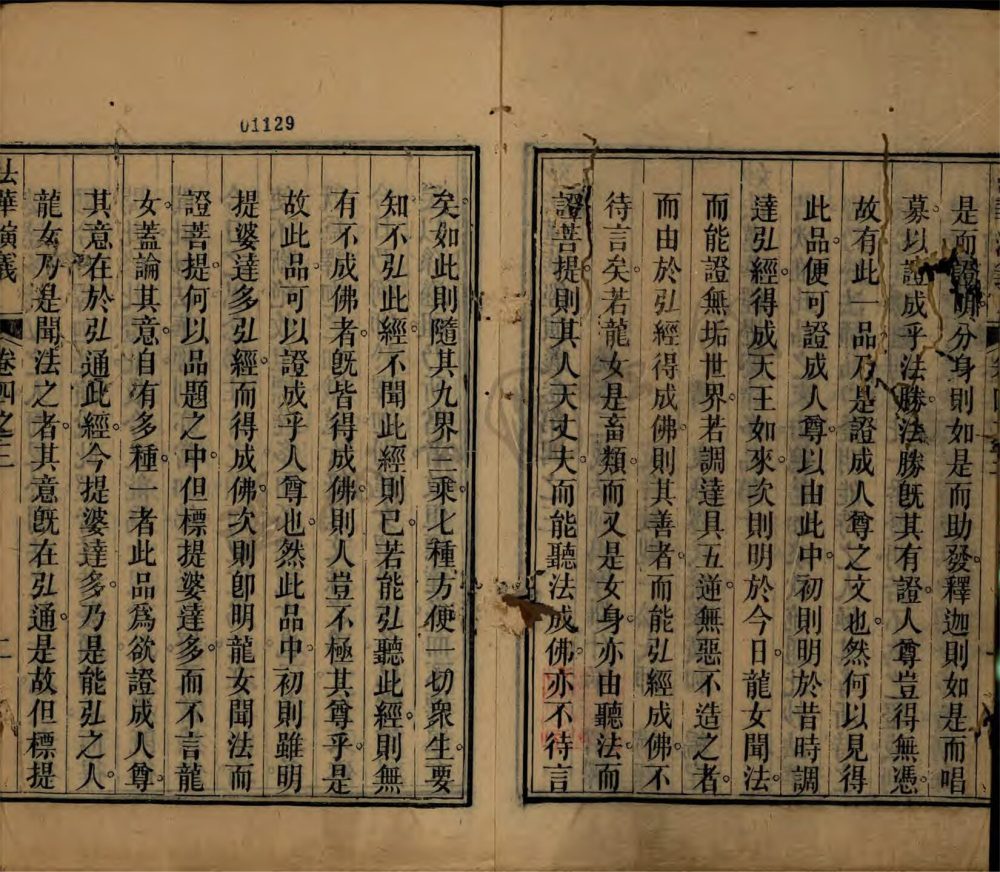 是而證明分身則如是而助發釋迦則如是而唱
募以證成乎法勝法勝旣其有證人尊豈得無憑
故有此一品乃是證成人尊之文也然何以見得
此品便可證成人尊以由此中初則明於昔時調
達弘經得成天王如來次則明於今日龍女聞法
而能證無垢世界若調達具五逆無惡不造之者
而由於弘經得成佛則其善者而能弘經成佛不
待言矣若龍女是畜類而又是女身亦由聽法而
證菩提則其人天丈夫而能聽法成佛亦不待言
01129
矣如此則隨其九界三乘七種方便一切衆生要
知不弘此經不聞此經則已若能弘聽此經則無
有不成佛者旣皆得成佛則人豈不極其尊乎是
故此品可以證成乎人尊也然此品中初則雖明
提婆達多弘經而得成佛次則卽明龍女聞法而
證菩提何以品題之中但標提婆達多而不言龍
女蓋論其意自有多種一者此品爲欲證成人尊
其意在於弘通此經今提婆達多乃是能弘之人
龍女乃是聞法之者其意旣在弘通是故但標提
法華演義 卷四之三 二